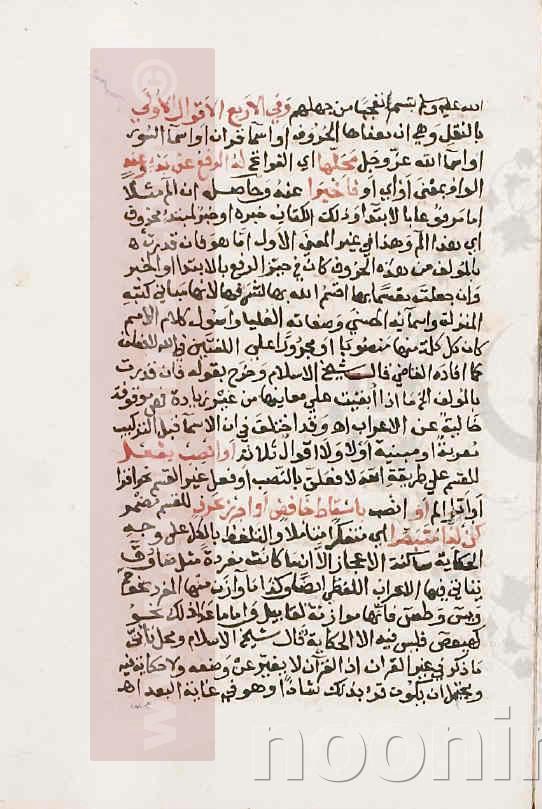 الله عليه وسلم باسم انفجها من جهلهم وفي الاربع الاقوال الاولي
بالنقل وهي ان بعضها الحروف او اسما قران او اسما السور
او اسما الله عز وجل محلها اي الفواتح له الرفع عن يد وعنه
الواو بمعني او اي او فاخبرا عنه وحاصله ان الم مثلا
اما مرفوع علي الابتدا وذلك الكتاب خبره او خبر لمبتدا محذوف
اي هذا الم وهذا في غير المعني الاول اما هو فان قدرت
بالمولف من هذه الحروف كان في حيز الرفع بالابتدا او الخبر
وان جعلته مقسما بها اقسم الله بها لشرفها لانها مباني كتبه
المنزلة واسمايه الحسني وصفاته العليا واصول كلام الامم
كان كل كلمة منها منصوبا او مجرورا علي اللغتين في الله لافعلن
كما افاده القاضي قال شيخ الاسلام وخرج بقوله فان قدرت
بالمولف الخ ما اذا ابقيت علي معانيها من غير زيادة فهي موقوفة
خالية عن الاعراب اه وقد اختلف في ان الاسما قبل التركيب
معربة او مبنية او لا ولا اقوال ثلاثة او انصب بفعل
للقسم علي طريقة الله لافعلن بالنصب او فعل غير القسم نحو اقرا
او اقرا الم او انصب باسقاط خافض او اجرر بحرف للقسم مضمر
كن لها مقتفرا اي متفكرا متاملا والتلفظ بالكل علي وجه
الحكاية ساكنة الاعجاز الا انما كانت مفردة مثل صاد وق
يتاتي فيها الاعراب اللفظي ايضا وكذا ما وازن منها المفرد نحو حم
ويس وطس فانها موازنة لقابيل واما ما عدا ذلك نحو
كهيعص فليس فيه الا الحكاية قال شيخ الاسلام ومحل تاتي
ما ذكر في غير القران اذ القران لا يغير عن وضعه ولا حكاية فيه
ويحتمل ان يكون قرئ بذلك شاذا وهو في غاية البعد اه
www.
noonin